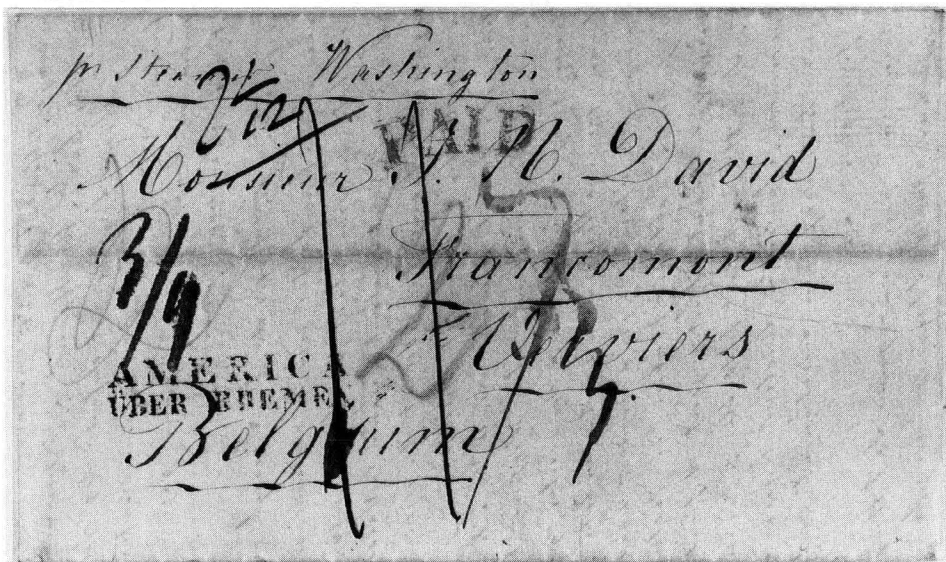 pr Steamer Washington
PAID
Monsieur J. N. David
Francomont
Verviers
AMERICA
ÜBER BREMEN
Belgium